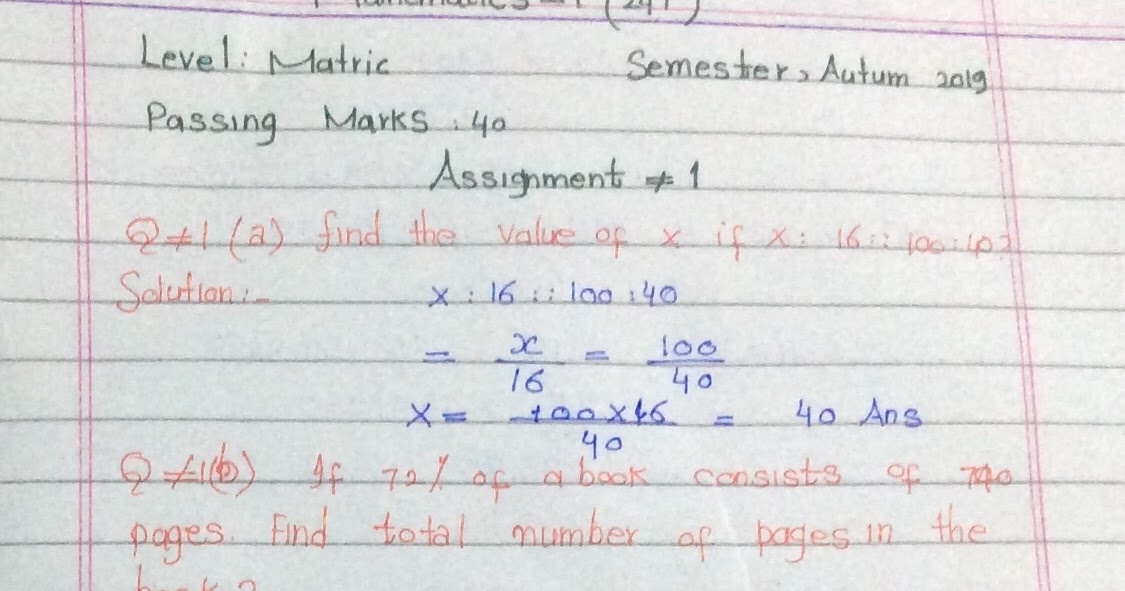 (241)
Level: Matric Semester, Autum 2019
Passing Marks: 40
Assignment ≠ 1
Q≠1 (a) find the value of x if x: 16:: 100:40?
Solution:- x : 16 :: 100 : 40
= x/16 = 100/40
x = 100x16/40 = 40 Ans
Q≠1(b) If 72% of a book consists of
pages. Find total number of pages in the
book?